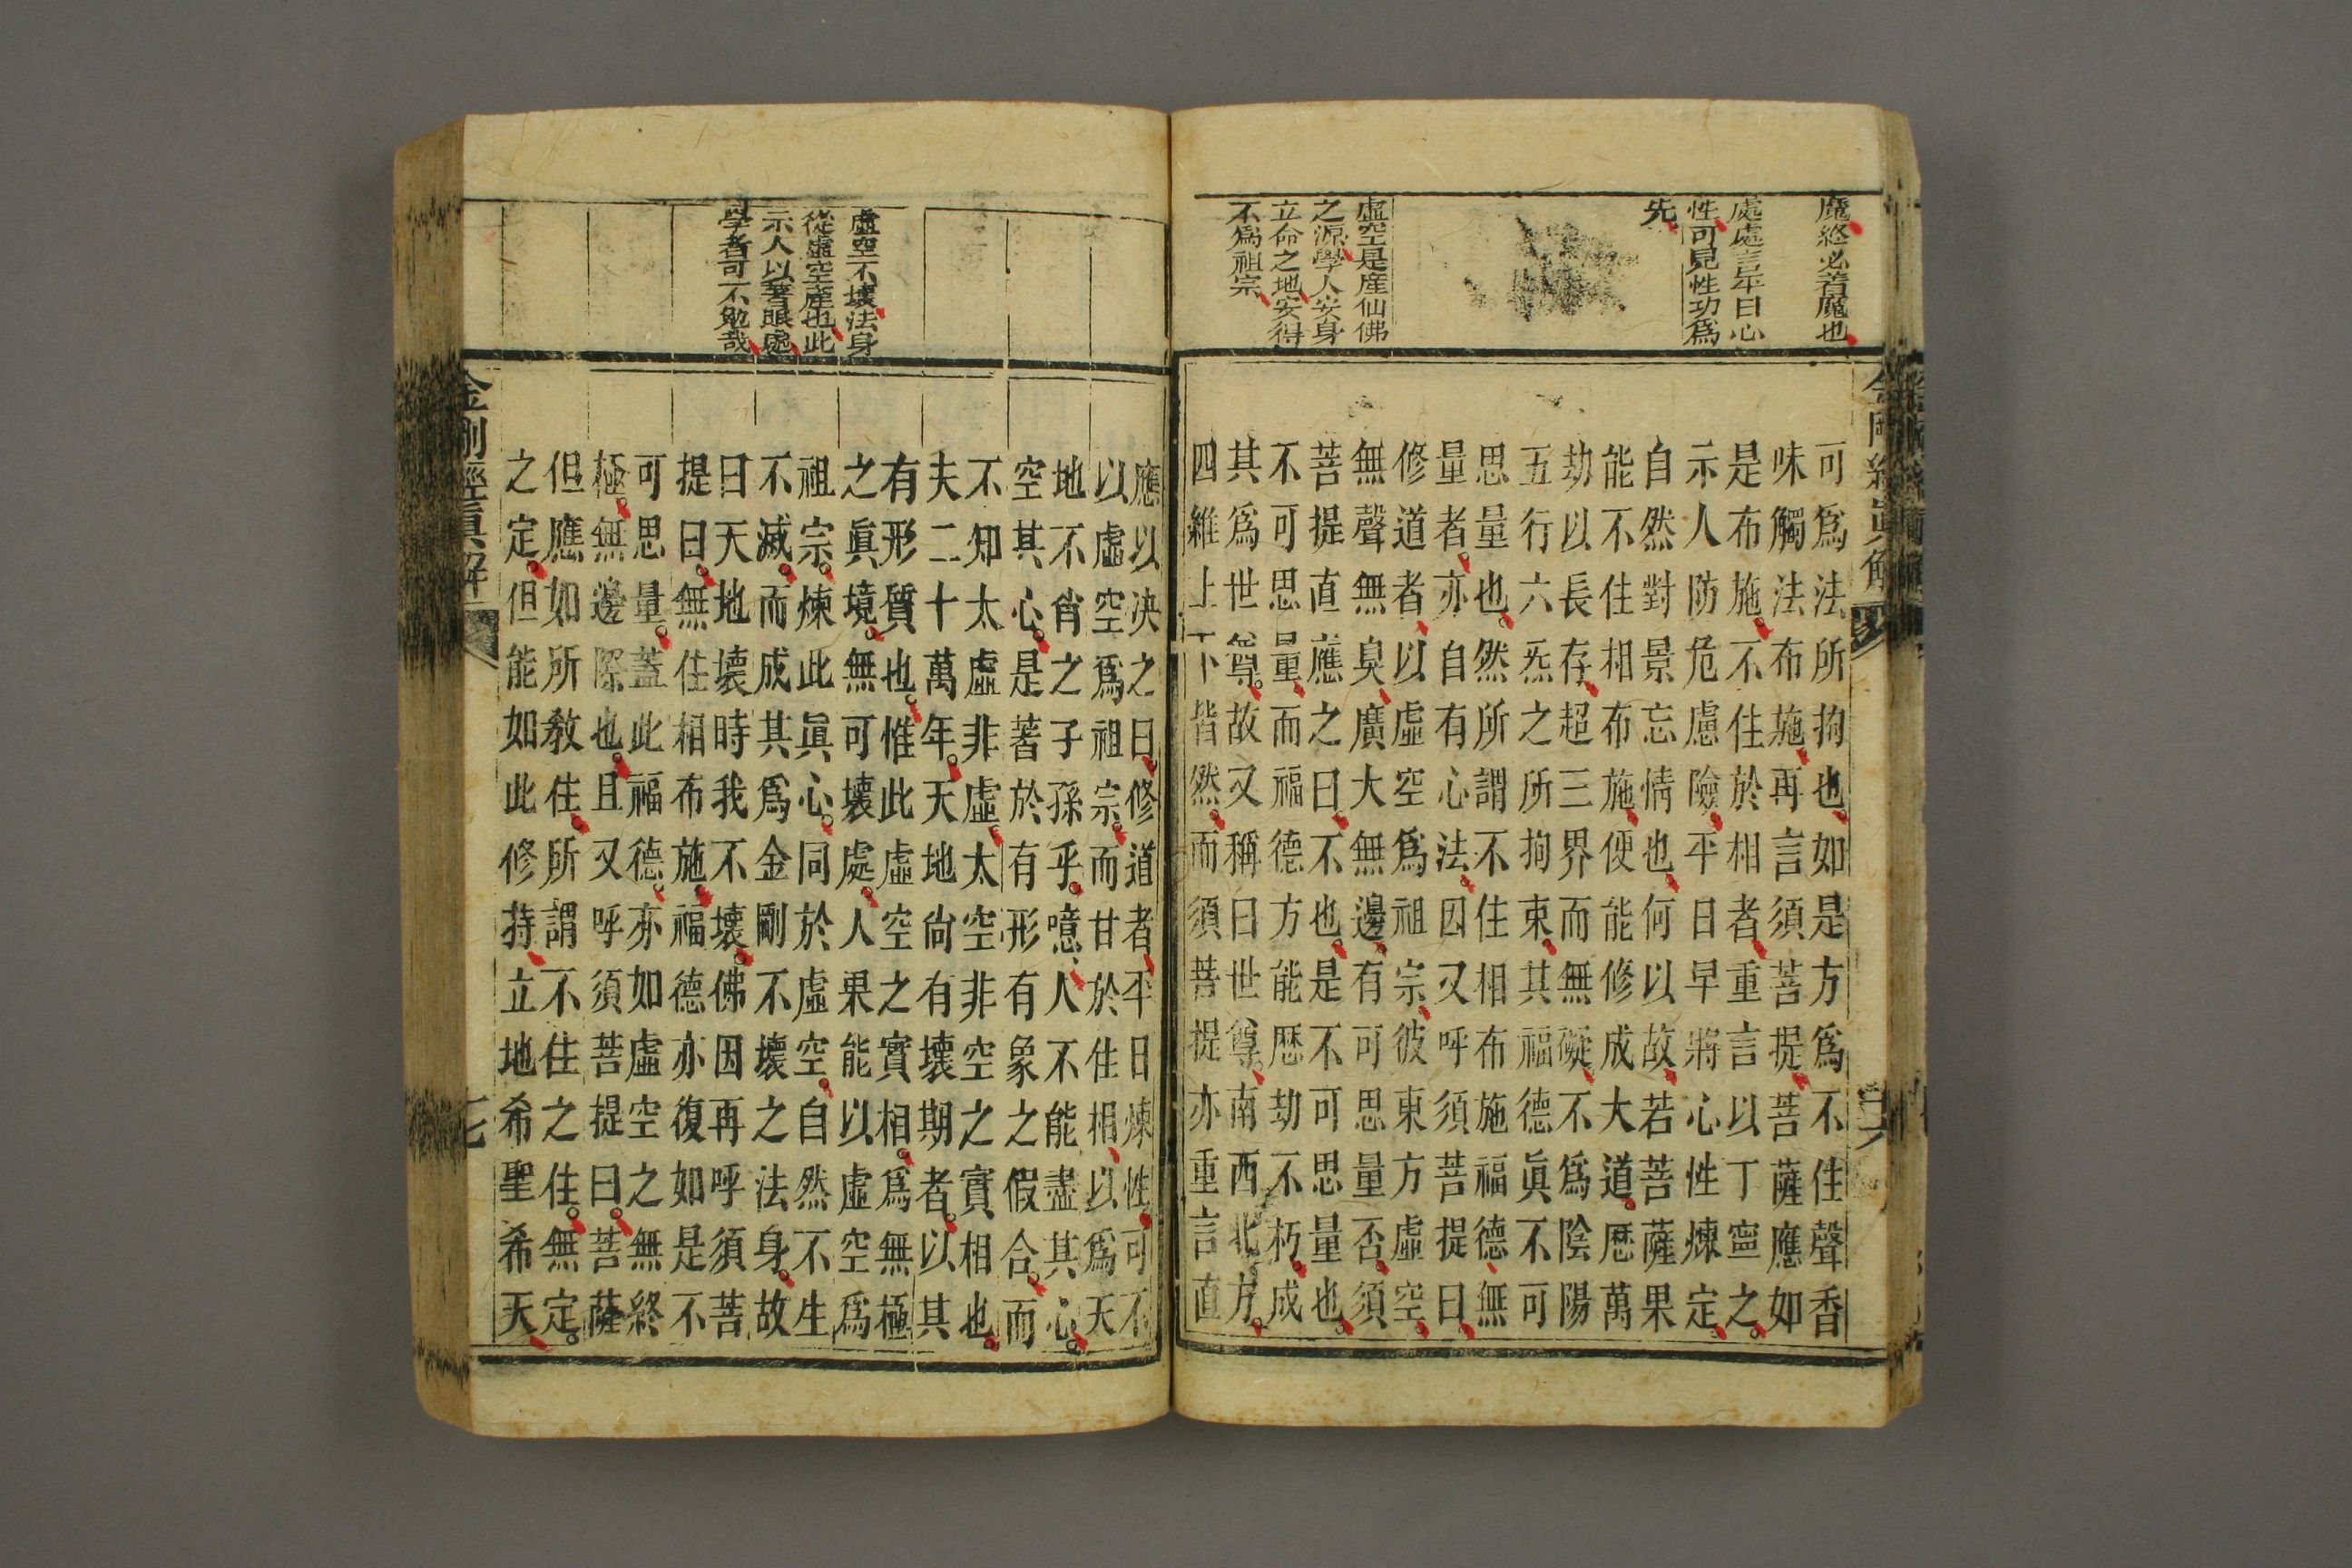 魔終必着魔也
處處言平日心
性可見性功爲
先
虛空是産仙佛
之源學人安身
立命之地安得
不爲祖宗
金剛經眞解
可爲法所拘也如是方爲不住聲香
味觸法布施再言須菩提菩薩應如
是布施不住於相者重言以丁寧之
示人防危慮險平日早將心性煉定
自然對景忘情也何以故若菩薩果
能不住相布施便能修成大道歷萬
劫以長存超三界而無礙不爲陰陽
五行六炁之所拘束其福德眞不可
思量也然所謂不住相布施福德無
量者亦自有心法因又呼須菩提曰
修道者以虛空爲祖宗彼東方虛空
無聲無臭廣大無邊有可思量否須
菩提直應之曰不也是不可思量也
不可思量而福德方能歷劫不朽成
其爲世尊故又稱曰世尊南西北方
四維上下皆然而須菩提亦重言直
虛空不壞法身
從虛空産也此
示人以著眼處
學者可不勉哉
應以决之曰修道者平日煉性可不
以虛空爲祖宗而甘於住相以爲天
地不肖之子孫乎噫人不能盡其心
空其心是著於有形有象之假合而
不知太虛非虛太空非空之實相也
夫二十萬年天地尙有壞期者以其
有形質也惟此虛空之實相爲無極
之眞境無可壞處人果能以虛空爲
祖宗煉此眞心同於虛空自然不生
不滅而成其爲金剛不壞之法身故
曰天地壞時我不壞佛因再呼須菩
提曰無住相布施福德亦復如是不
可思量蓋此福德亦如虛空之無終
極無邊際也且又呼須菩提曰菩薩
但應如所教住所謂不住之住無定
之定但能如此修持立地希聖希天
金剛經眞解